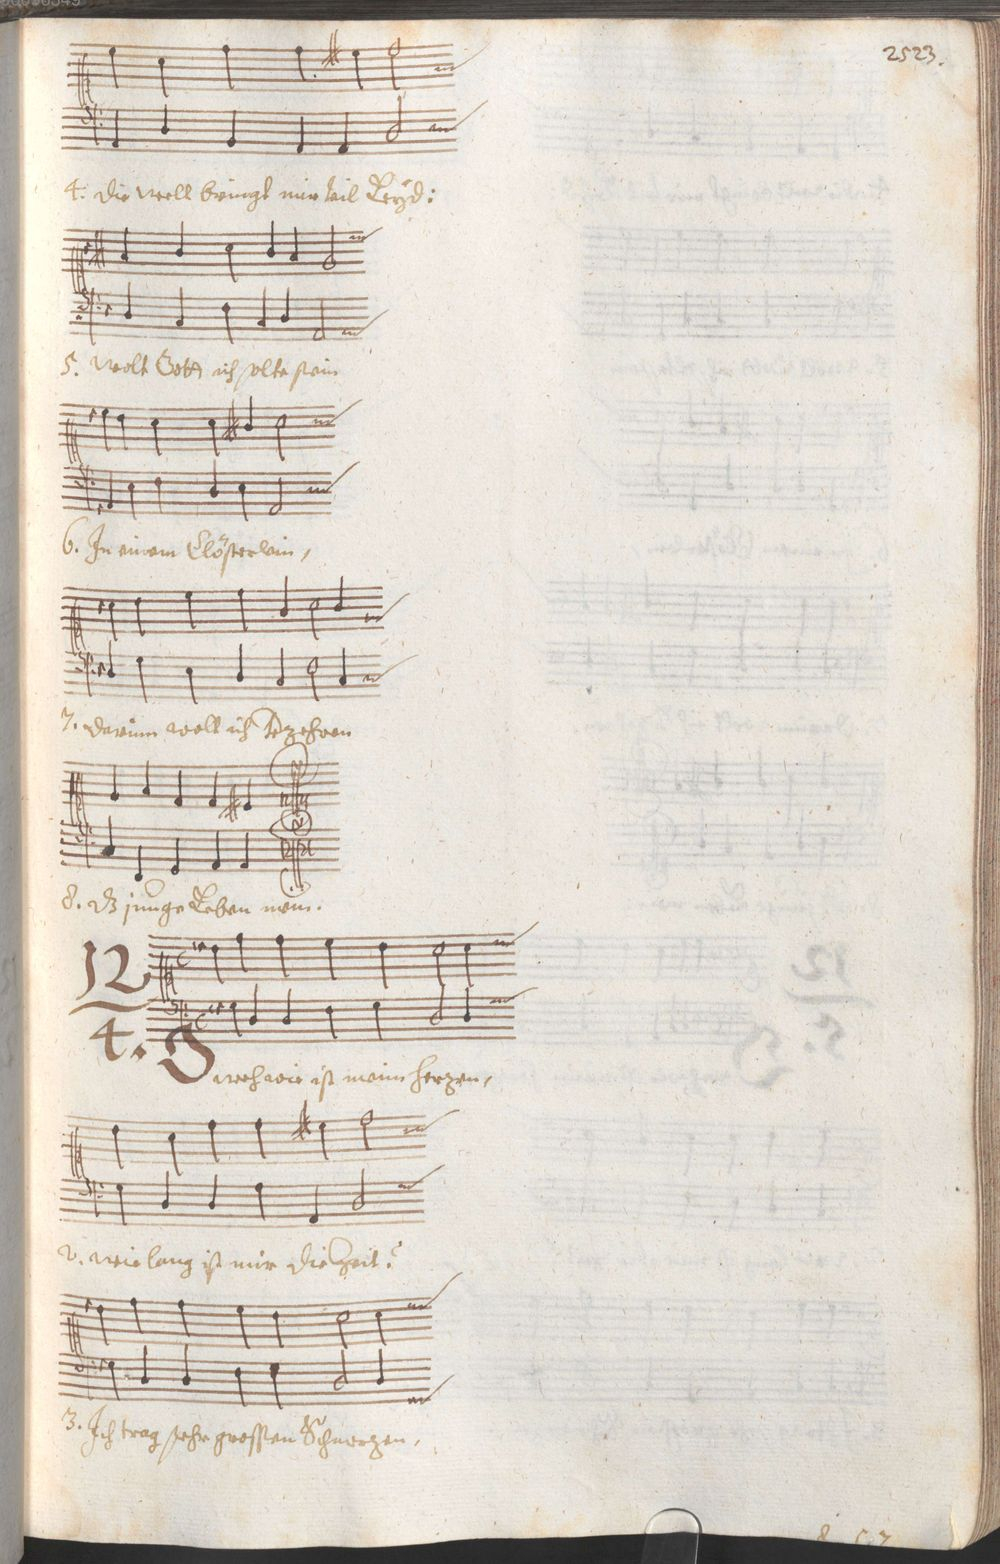 2523.
4. die well bringt mir kail Leyd:
5. Wolt Gott ich solte sein
6. In einem Clösterlein,
7. darum wolt ich
8. dz junge Leben mein.
12
4. O weh wie ist meim herzen,
2. wie lang ist mir die Zeit:
3. Ich trag sehr grossen Schmerzen,